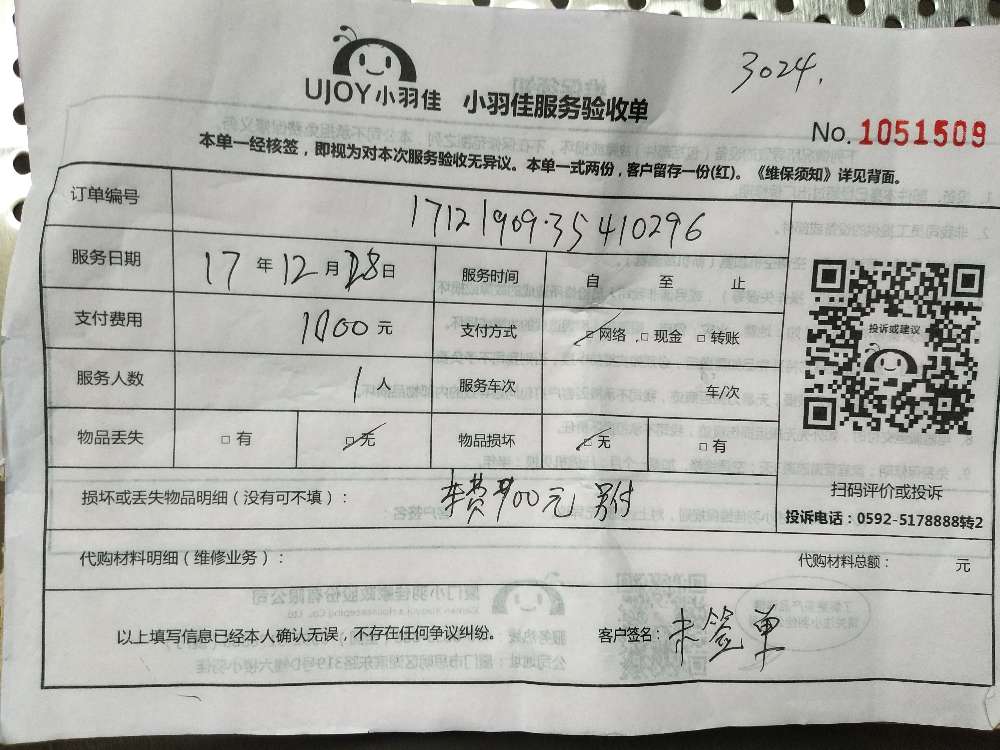 3024.
UJOY小羽佳 小羽佳服务验收单
No. 1051509
本单一经核签，即视为对本次服务验收无异议。本单一式两份，客户留存一份(红)。《维保须知》详见背面。
订单编号 17121909·35410296
服务日期 17年12月28日 服务时间 自 至 止
支付费用 1000元 支付方式 网络 □现金 □转账
服务人数 1人 服务车次 车/次
物品丢失 □有 □无 物品损坏 □无 □有
投诉或建议
扫码评价或投诉
投诉电话：0592-5178888转2
损坏或丢失物品明细（没有可不填）： 车费 00元 另付
代购材料明细（维修业务）： 代购材料总额： 元
以上填写信息已经本人确认无误，不存在任何争议纠纷。 客户签名：未签单